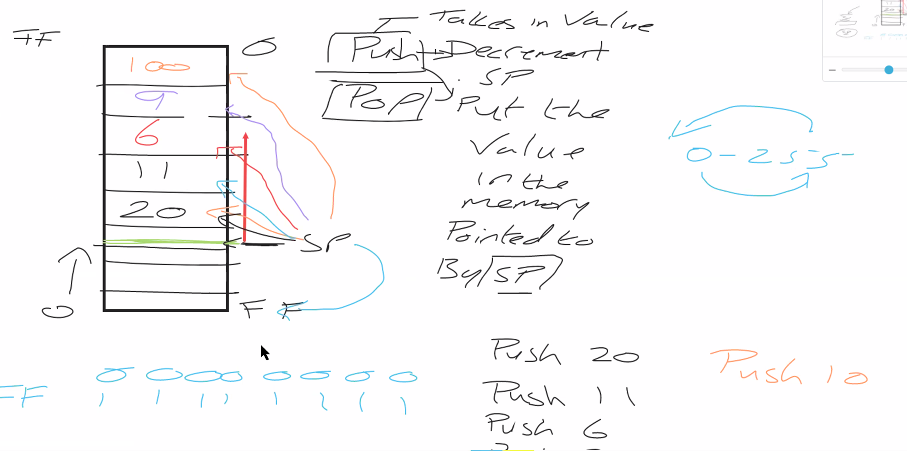 FF
0
100
9
6
11
20
0
SP
FF
Push
Pop
Takes in Value
Decrement
SP
Put the
Value
in the
memory
Pointed to
By SP
0-255
FF
0 0 0 0 0 0 0 0
1 1 1 1 1 1 1 1
Push 20
Push 11
Push 6
Push 10